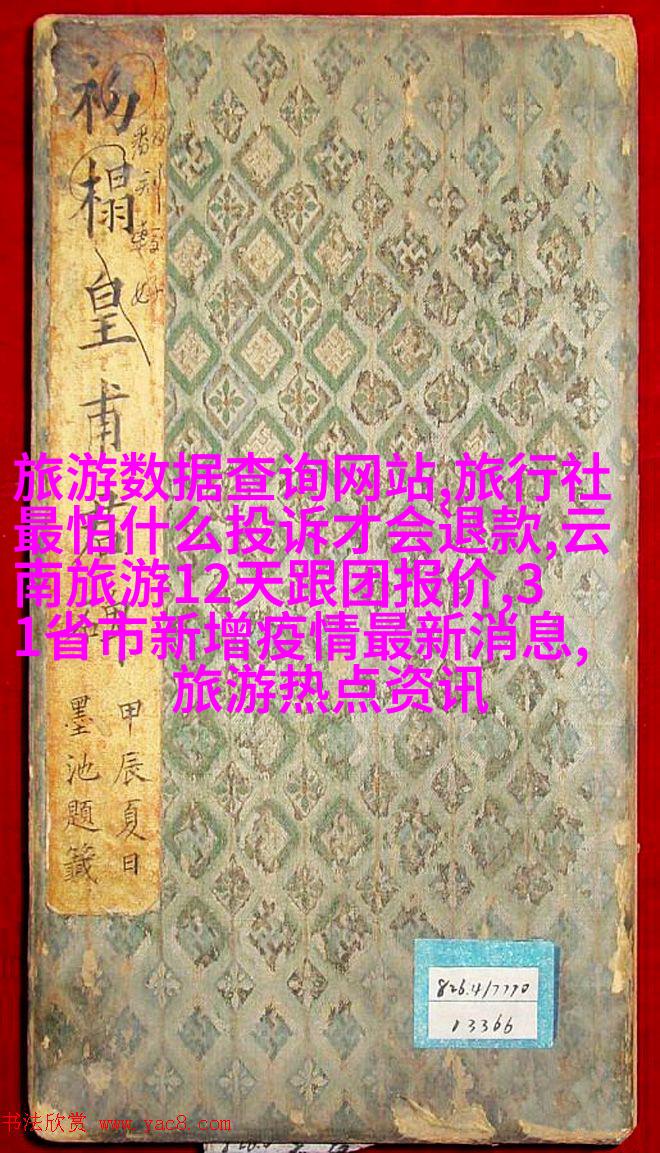 初榻皇甫君碑
翻刻較好
甲辰夏日
墨池題籤
旅游数据查询网站,旅行社
最怕什么投诉才会退款,云
南旅游12天跟团报价,3
1省市新增疫情最新消息,
旅游热点资讯
826.4/7770
13366
书法欣赏 www.yac8.com